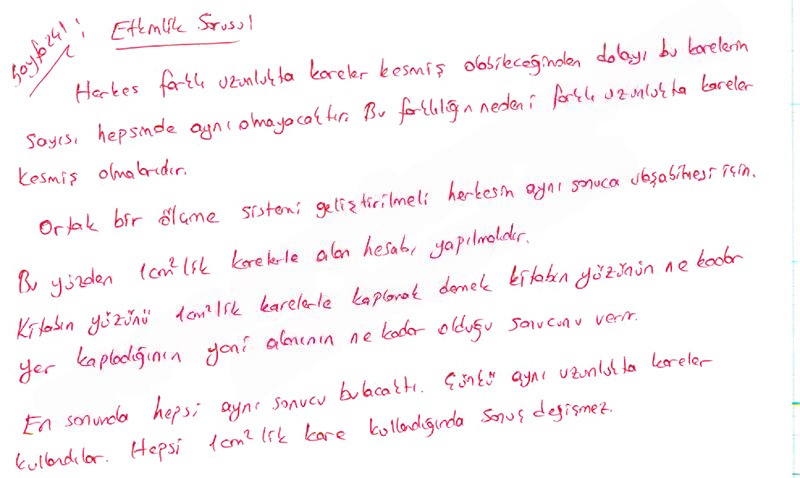 Sayfa 241: Etkinlik Sorusu!
Herkes farklı uzunlukta kareler kesmiş olabileceğinden dolayı bu karelerin
sayısı hepsinde aynı olmayacaktır. Bu farklılığın nedeni farklı uzunlukta kareler
kesmiş olmalarıdır.
Ortak bir ölçme sistemi geliştirilmeli herkesin aynı sonuca ulaşabilmesi için.
Bu yüzden 1cm²lik karelerle alan hesabı yapılmalıdır.
Kitabın yüzünü 1cm²lik karelerle kaplamak demek kitabın yüzünün ne kadar
yer kapladığının yani alanının ne kadar olduğu sonucunu verir.
En sonunda hepsi aynı sonucu bulacaktı. Çünkü aynı uzunlukta kareler
kullandılar. Hepsi 1cm²lik kare kullandığında sonuç değişmez.